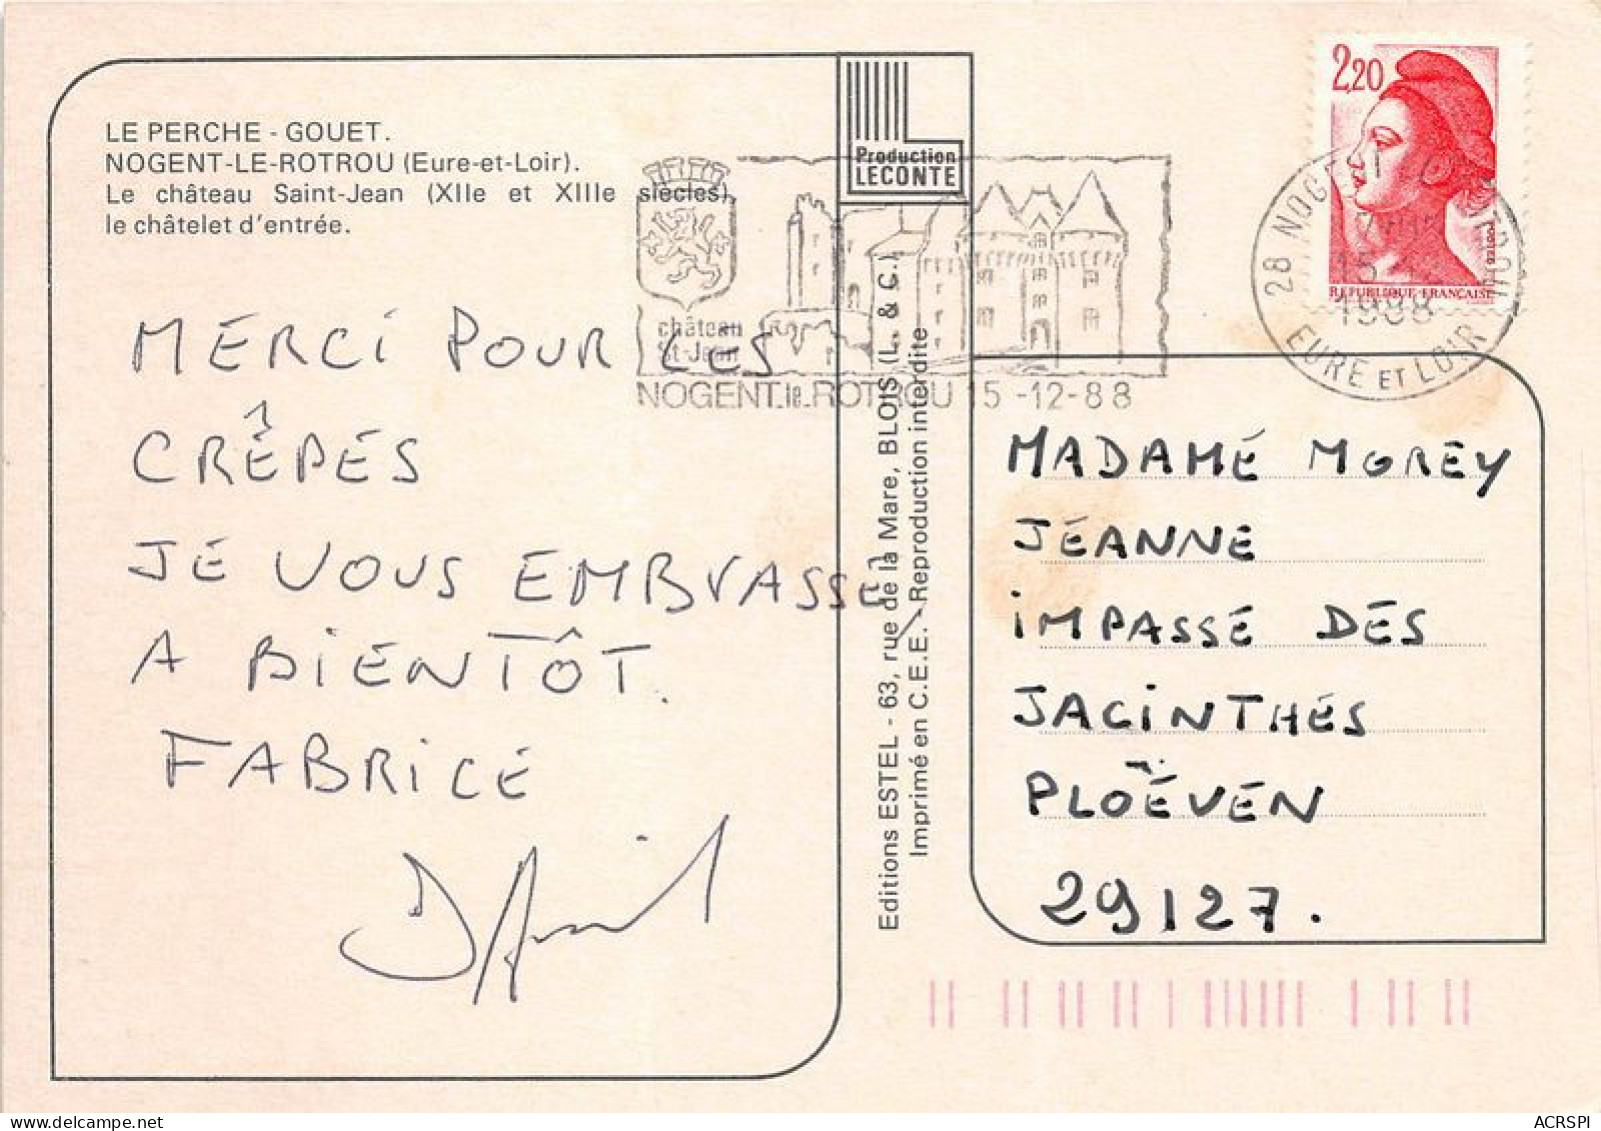 LE PERCHE - GOUET.
NOGENT-LE-ROTROU (Eure-et-Loir).
Le château Saint-Jean (XIIe et XIIIe siècles),
le châtelet d'entrée.
Production
LECONTE
2,20
REPUBLIQUE FRANÇAISE
28 NOGENT LE ROTROU
15 - 12
1988
EURE ET LOIR
château
St-Jean
NOGENT.le.ROTROU 15-12-88
MERCI POUR LES
CRÊPES
JE VOUS EMBRASSE
A BIENTÔT.
FABRICE
Editions ESTEL - 63, rue de la Mare, BLOIS (L. & C.)
Imprimé en C.E.E. - Reproduction interdite
MADAME MOREY
JEANNE
IMPASSE DES
JACINTHES
PLOËVEN
29127.
ACRSPI